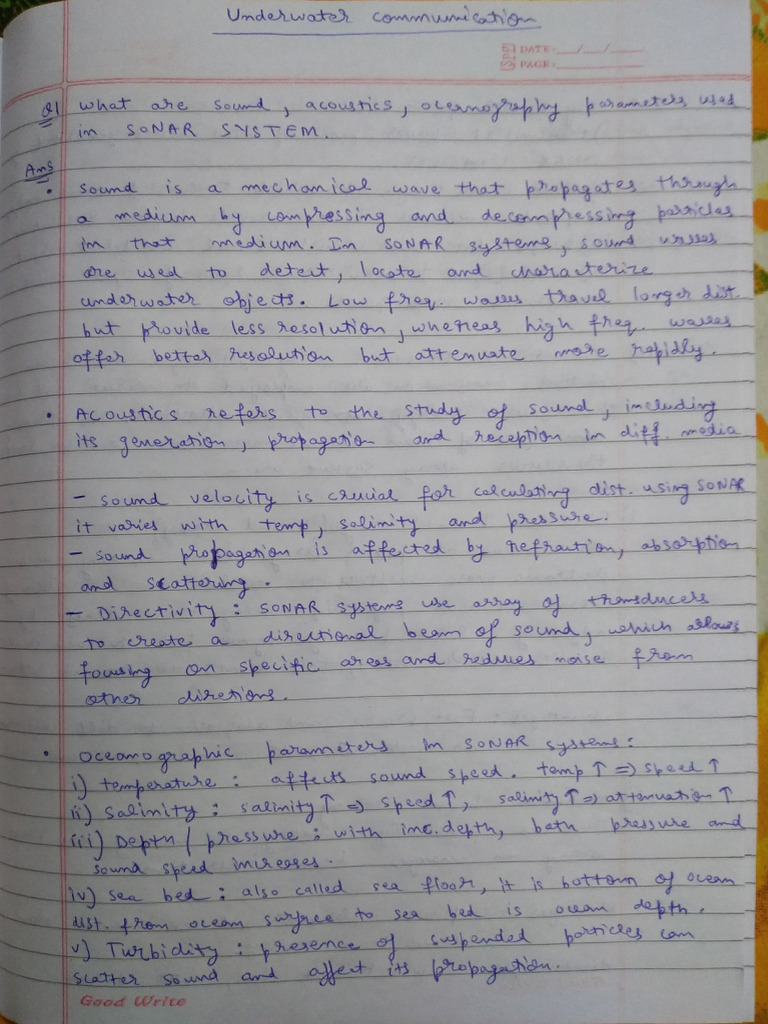 Underwater communication
DATE: __/__/____
PAGE: ________
Q1 what are sound, acoustics, oceanography parameters used
in SONAR SYSTEM.
Ans
• sound is a mechanical wave that propagates through
a medium by compressing and decompressing particles
in that medium. In SONAR systems, sound waves
are used to detect, locate and characterize
underwater objects. Low freq. waves travel longer dist.
but provide less resolution, whereas high freq. waves
offer better resolution but attenuate more rapidly.
• Acoustics refers to the study of sound, including
its generation, propagation and reception in diff. media
- sound velocity is crucial for calculating dist. using SONAR
it varies with temp, salinity and pressure.
- sound propagation is affected by refraution, absorption
and scattering.
- Directivity : SONAR systems use array of transducers
to create a directional beam of sound, which allows
focusing on specific areas and reduces noise from
other diretions.
• Oceanographic parameters in SONAR systems :
i) temperature : affects sound speed. temp ↑ => speed ↑
ii) salinity : salinity ↑ => speed ↑, salinity ↑ => attenuation ↑
iii) Depth / pressure : with inc. depth, both pressure and
sound speed increses.
iv) sea bed : also called sea floor, it is bottom of ocean
dist. from ocean surfrce to sea bed is ocean depth.
v) Turbidity : presence of suspended particles can
scatter sound and affect its propagation.
Good Write